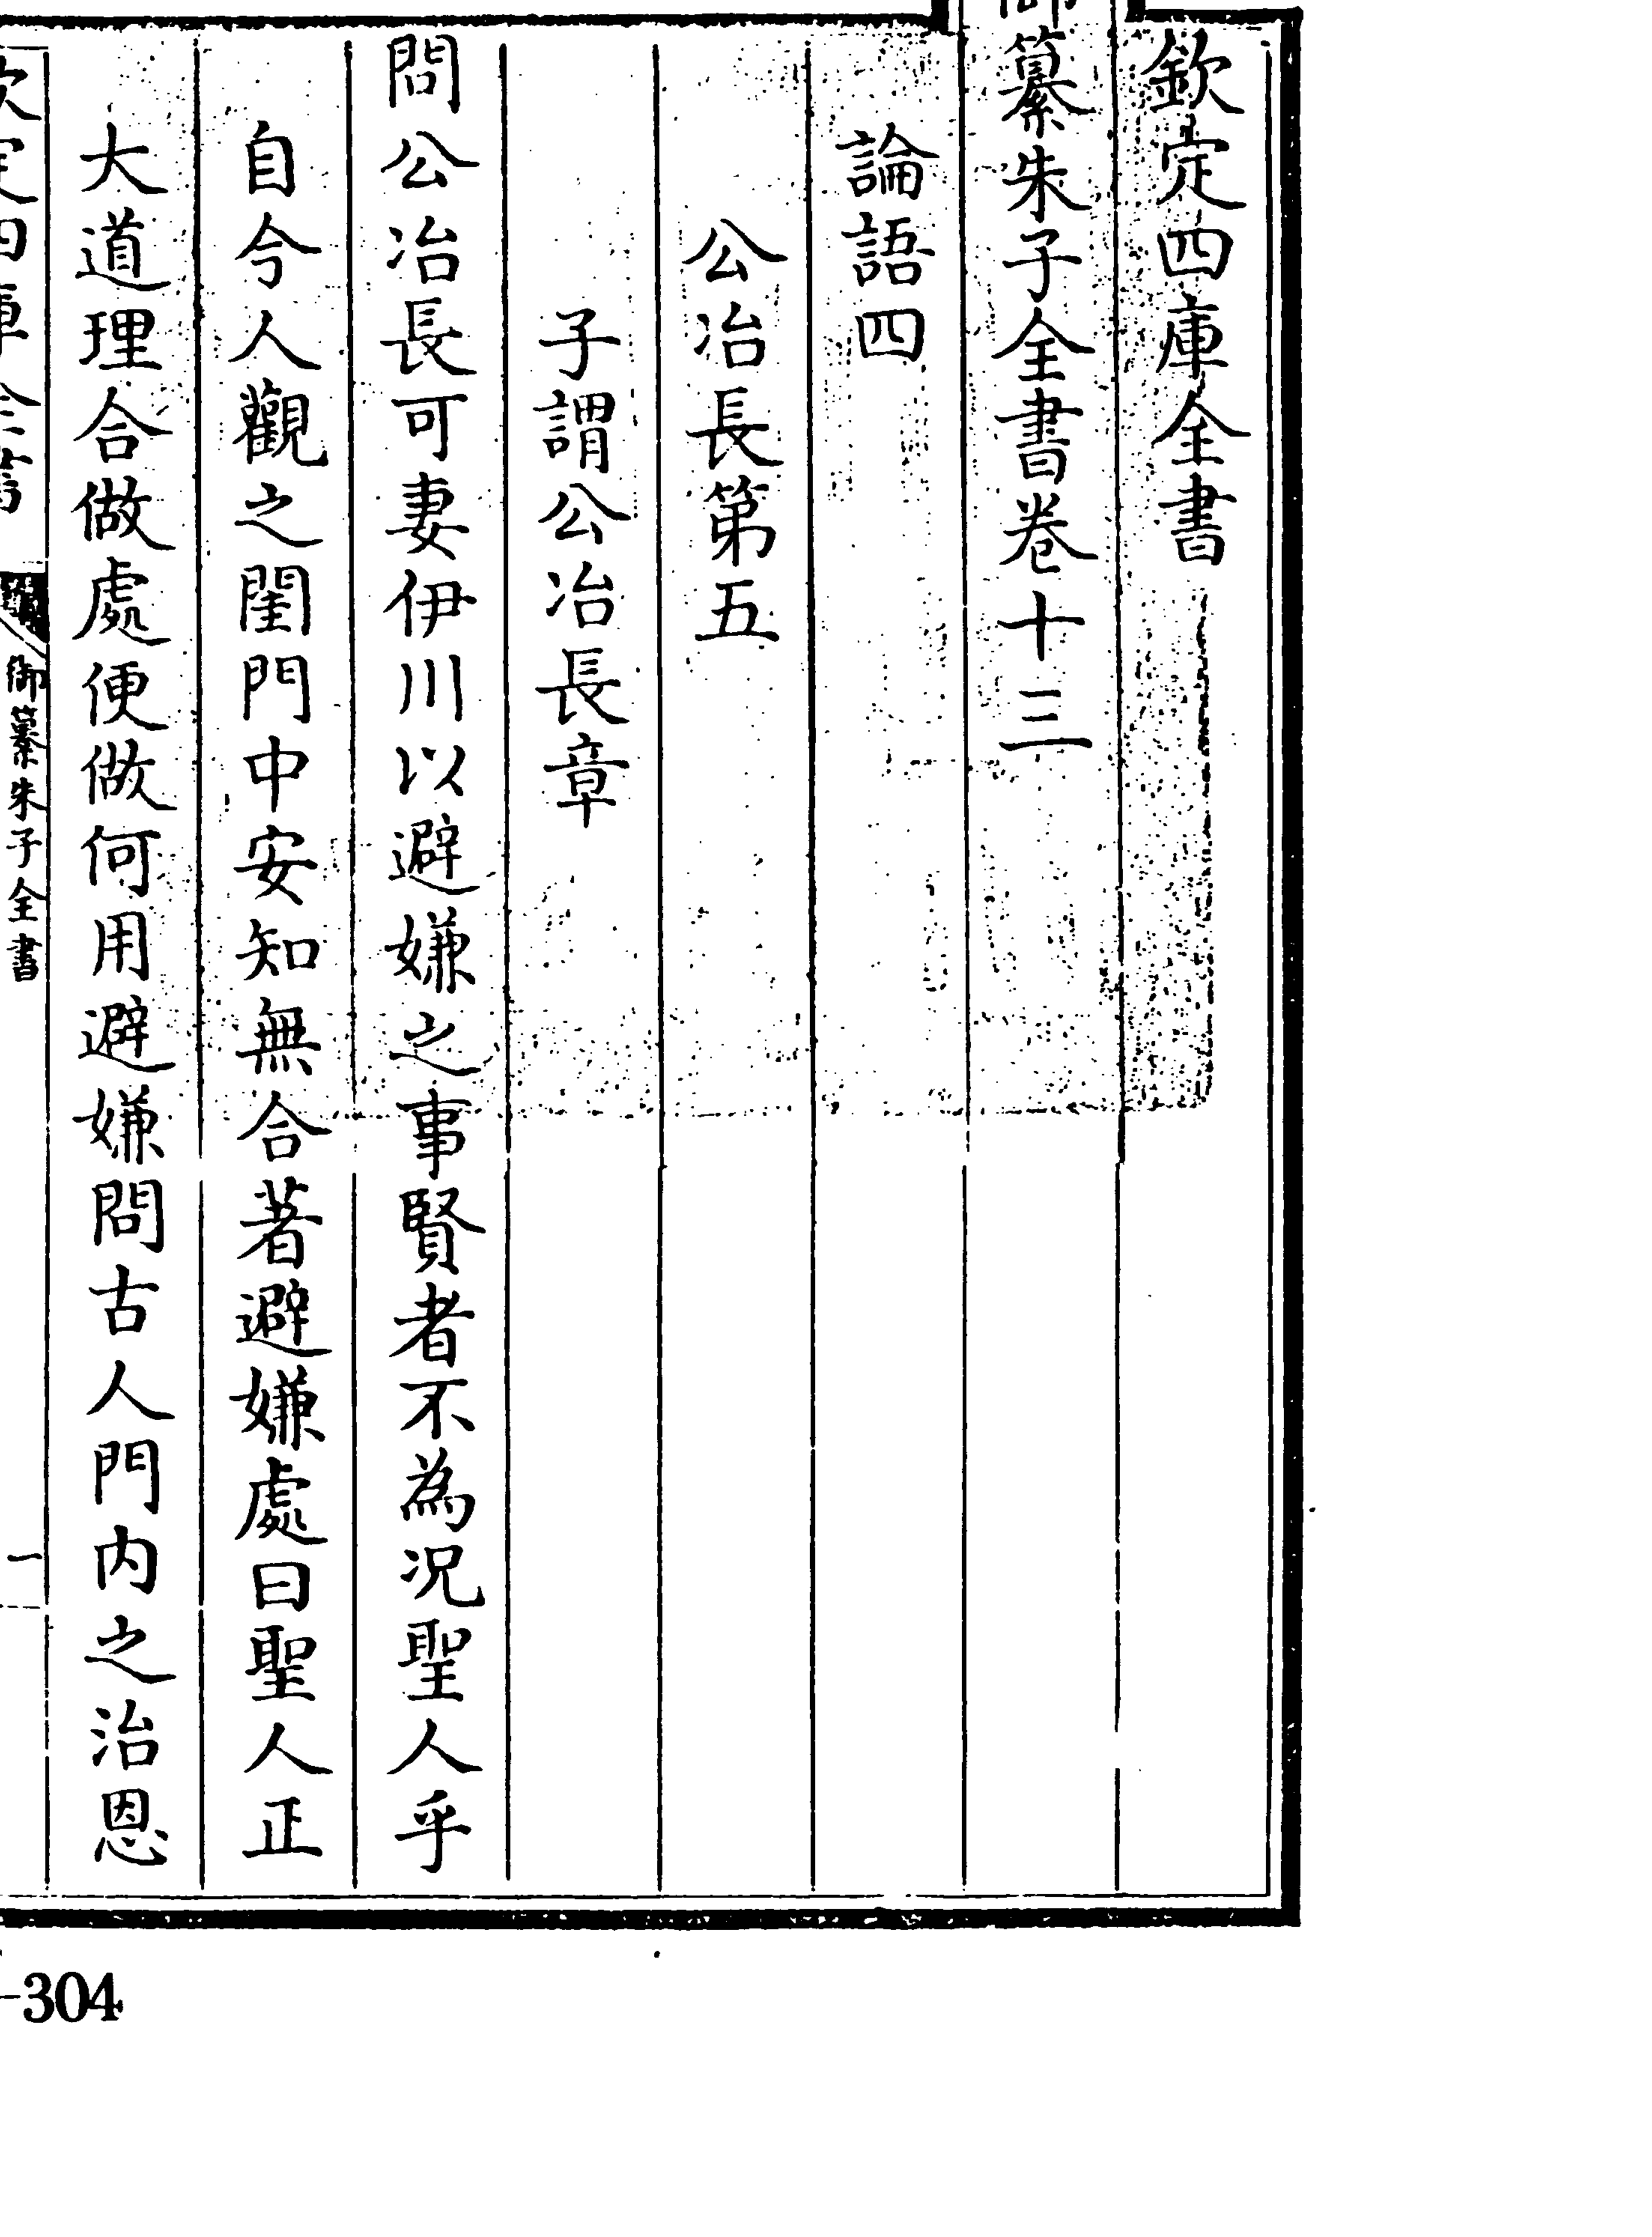 欽定四庫全書
御纂朱子全書卷十三
論語四
公冶長第五
子謂公冶長章
問公冶長可妻伊川以避嫌之事賢者不為况聖人乎
自今人觀之閨門中安知無合著避嫌處曰聖人正
大道理合做處便做何用避嫌問古人門内之治恩
欽定四庫全書
御纂朱子全書
一
-304